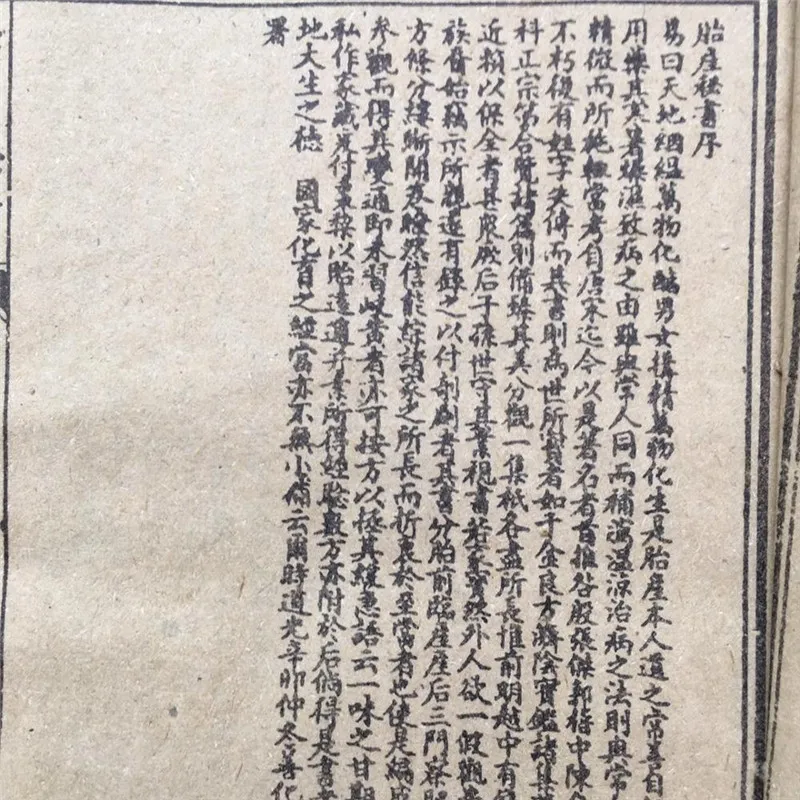 胎產秘書序
易曰天地絪縕萬物化醕男女搆精萬物化生是胎產本人道之常善自
用藥其寒暑燥濕致病之由雖與常人同而補瀉温涼治病之法則與常
精微而所施輒當考自唐宋迄今以是著名者首推昝殷張傑郭稽中陳
不朽後有姓字失傳而其書則為世所寶者如千金良方濟陰寶鑑諸
科正宗第合賢喆篇別備臻其美分觀一集祇各盡所長惟前明越中有
近賴以保全者甚眾厥后子孫世守其業視書若至寶然外人欲一假觀
族督始竊示所親遂有錄之以付剞劂者其書分胎前臨產產后三門
方條分縷晰開卷瞭然信能綜諸家之所長而折衷於至當者也使是編
參觀而得其變通即未習岐黃者亦可按方以拯其維意語云一味之甘
私作家藏爰付棗梨以胎遠邇并素所得經驗數方亦附於后倘得是書
地大生之德 國家化育之經當亦不無小補云爾時道光辛卯仲冬善化
署